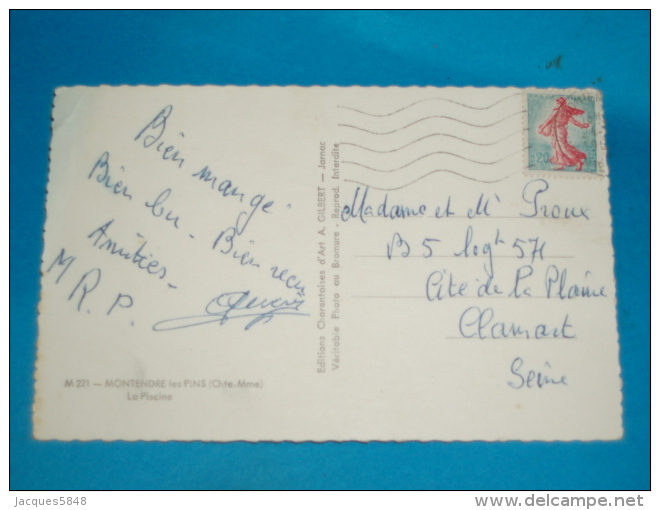 Bien mangé.
Bien bu - Bien reçu
Amitiés -
M R. P.
M 221 — MONTENDRE les PINS (Chte-Mme)
La Piscine
Editions Charentaises d'Art A. GILBERT — Jarnac
Véritable Photo au Bromure - Reprod. Interdite
0,20
Madame et Mr Proux
B 5 logt 571
Cité de la Plaine
Clamart
Seine
Jacques5848
delcampe.net